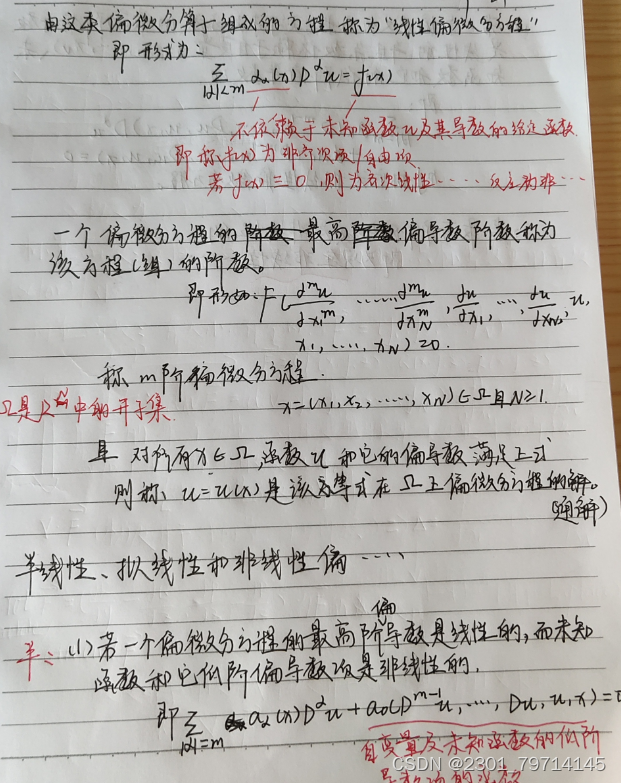 由这类偏微分算子组成的方程 称为"线性偏微分方程"
即 形式为:
∑_{|α|≤m} aα(x)D^α u = f(x)
不依赖于未知函数u及其导数的给定函数
即称f(x)为非齐次项/自由项
若 f(x)≡0,则为齐次线性······反之为非···
一个偏微分方程的 最高 偏导数阶数称为
该方程(组)的阶数。
即形如:F(∂^m u/∂x_1^m, ······ ∂^m u/∂x_N^m, ∂u/∂x_1, ···, ∂u/∂x_N, u,
x_1, ····, x_N)=0.
称 m阶偏微分方程.
Ω是R^N中的开子集
x=(x_1,x_2,····,x_N)∈Ω且N≥1.
且 对所有x∈Ω,函数u 和它的偏导数 满足上式
则称 u=u(x)是该方等式在Ω上偏微分方程的解。
(通解)
半线性、拟线性和非线性偏····
偏
半: (1)若一个偏微分方程的最高阶导数是线性的,而未知
函数和它低阶偏导数项是非线性的.
即∑_{|α|=m} a_α(x)D^α u + a_0(D^{m-1}u, ···, Du, u, x)=0
自变量及未知函数的低阶
CSDN @2301_79714145